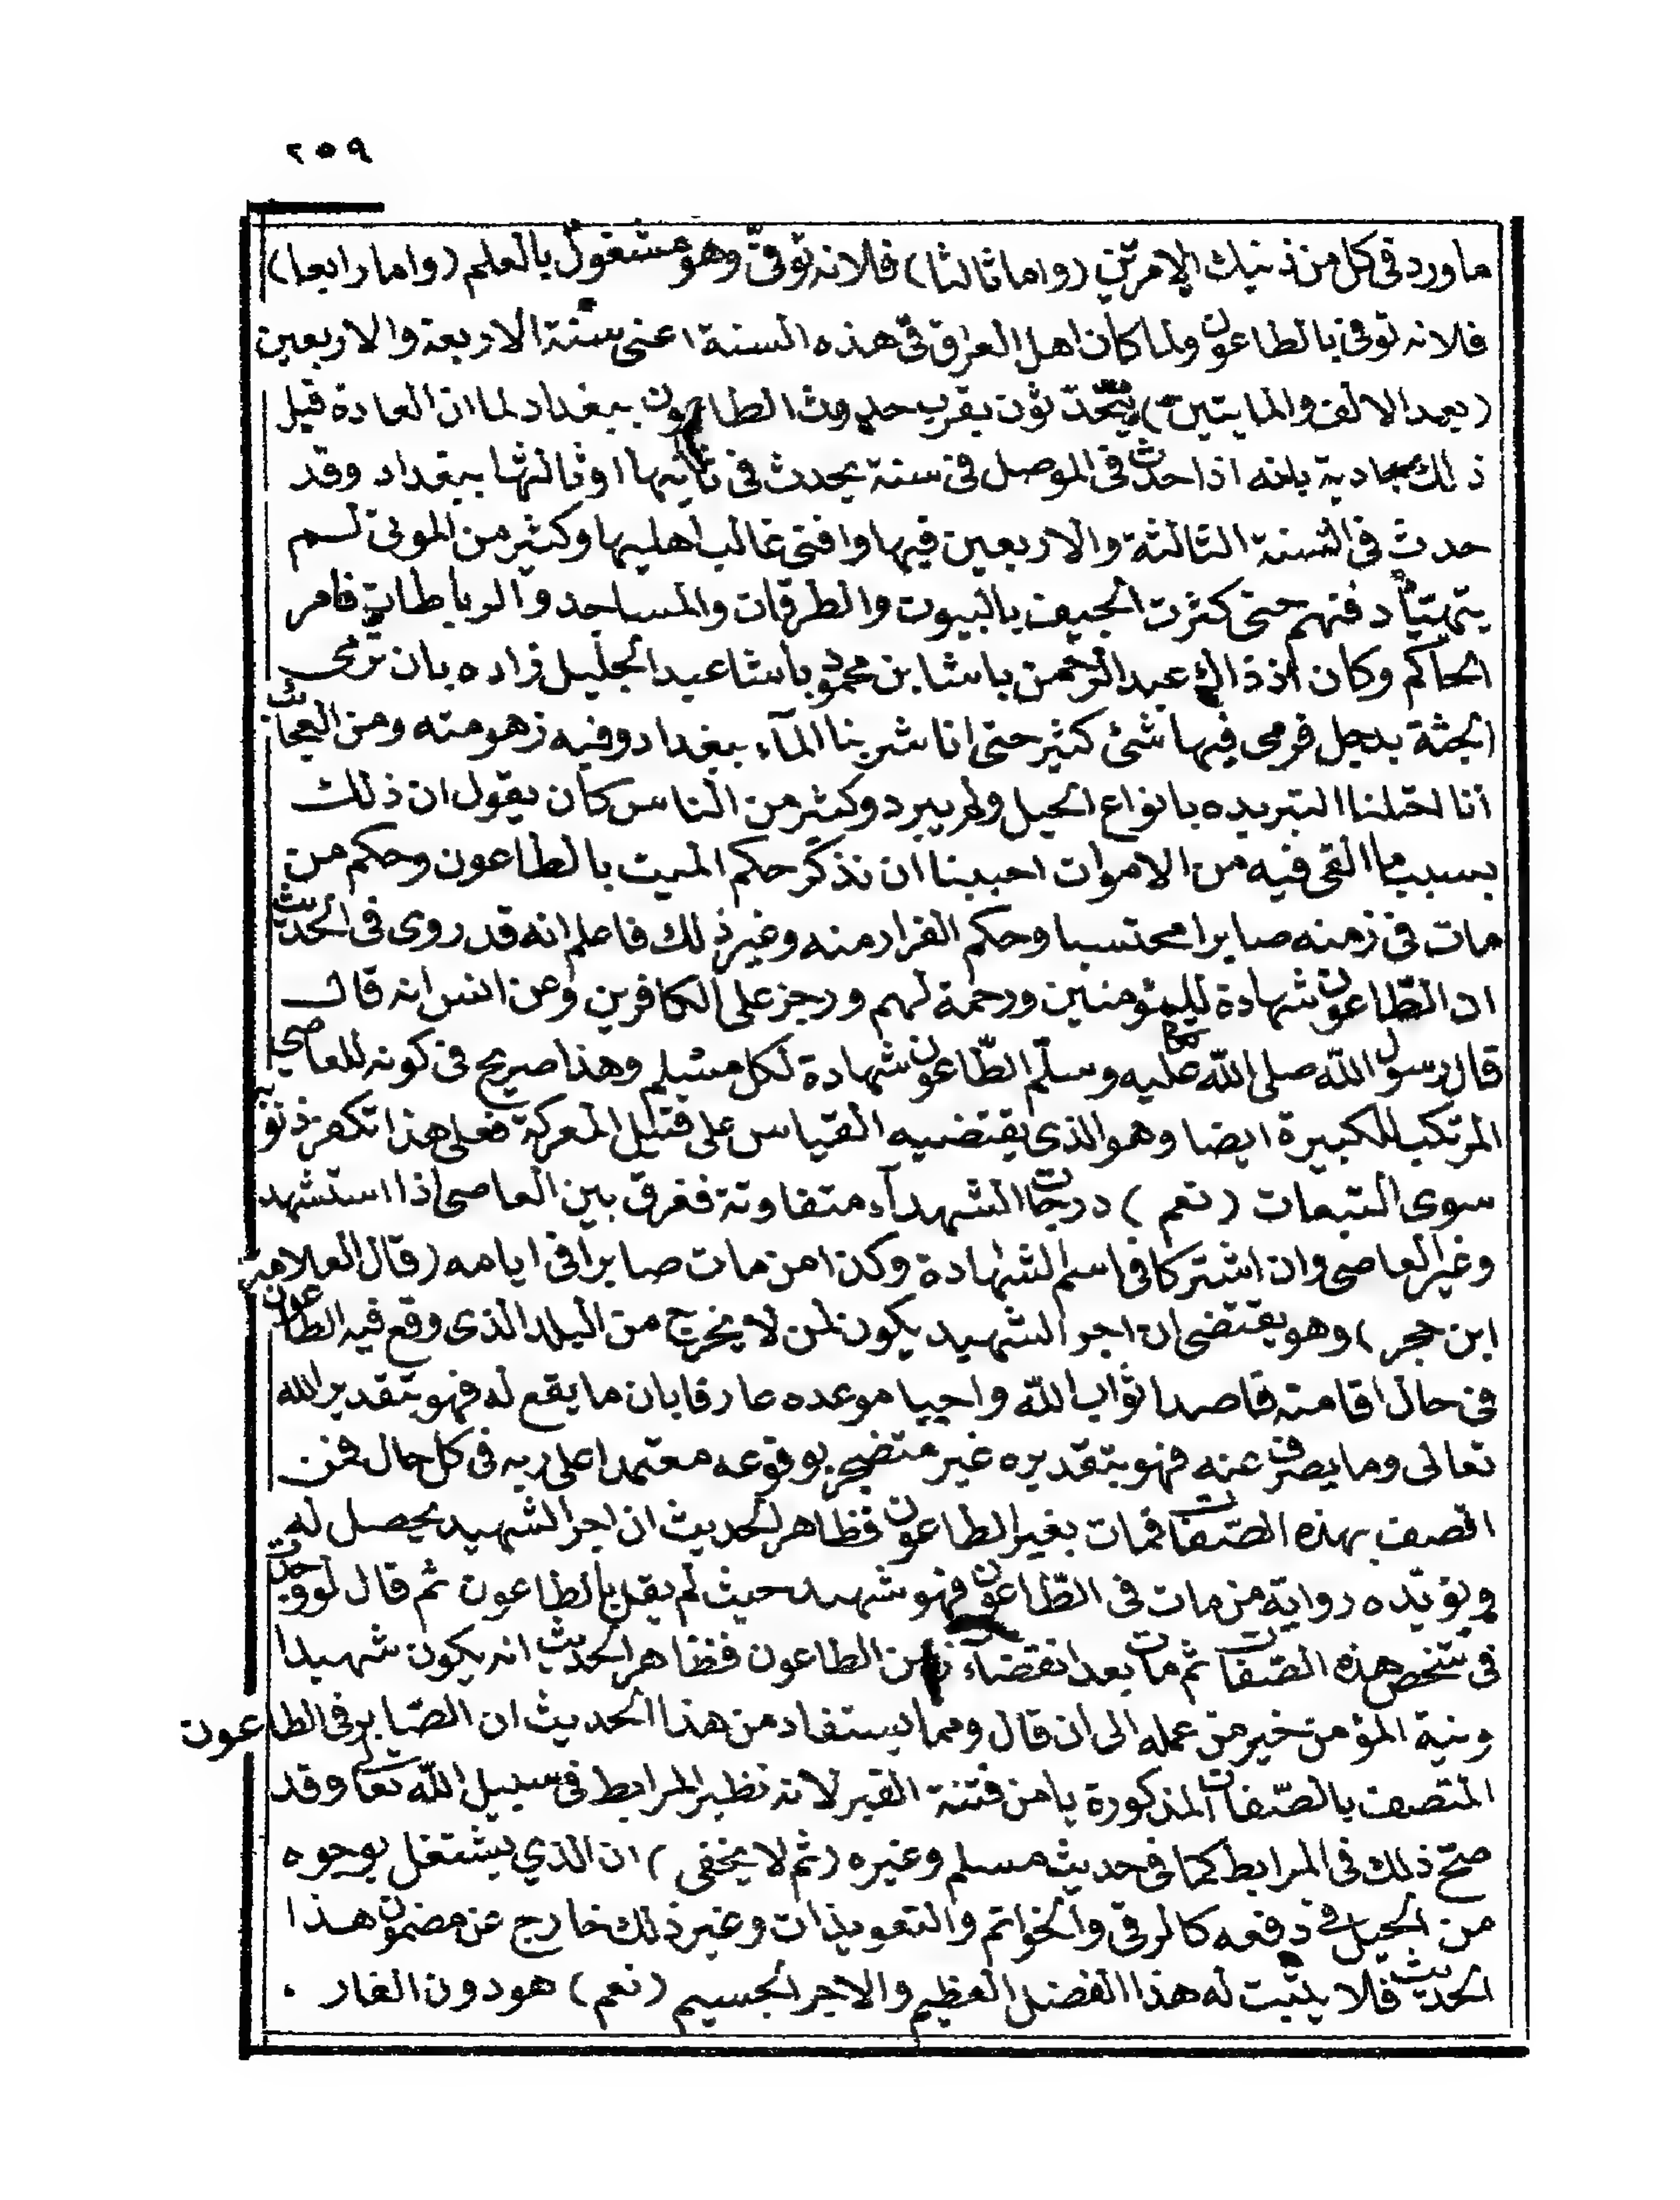 ٢٥٩
ما ورد فى كل من ذينك الامرين (واما ثالثا) فلانه توفى وهو مشغول بالعلم (واما رابعا)
فلانه توفى بالطاعون ولما كان اهل العراق فى هذه السنة اعنى سنة الاربعة والاربعين
(بعد الالف والمايتين) يتحدثون بقرب حدوث الطاعون ببغداد لما ان العادة قبل
ذلك جادية بانه اذا حدث فى الموصل فى سنة يحدث فى ثانيها او ثالثها ببغداد وقد
حدث فى السنة الثالثة والاربعين فيها وافنى غالب اهليها وكثير من الموتى لم
يتهيأ دفنهم حتى كثرت الجيف بالبيوت والطرقات والمساجد والرباطات فامر
الحاكم وكان اذ ذاك عبد الرحمن باشا بن محمود باشا عبد الجليل زاده بان ترمى
الجثة بدجل فرمى فيها شئ كثير حتى انا شربنا المآء ببغداد وفيه زهومته ومن العجائب
انا احتلنا التبريده بانواع الحيل ولم يبرد وكثير من الناس كان يقول ان ذلك
بسبب ما القى فيه من الاموات احببنا ان نذكر حكم الميت بالطاعون وحكم من
مات فى زمنه صابرا محتسبا وحكم الفرار منه وغير ذلك فاعلم انه قد روى فى الحديث
ان الطّاعون شهادة للمؤمنين ورحمة لهم ورجز على الكافرين وعن انس انه قال
قال رسول الله صلى الله عليه وسلّم الطّاعون شهادة لكل مسلم وهذا صريح فى كونه للعاصى
المرتكب للكبيرة ايضا وهو الذى يقتضيه القياس على قتيل المعركة فعلى هذا تكفر ذنوبه
سوى التبعات (نعم) درجات الشهدآء متفاوتة ففرق بين العاصى اذا استشهد
وغير العاصى وان اشتركا فى اسم الشهادة وكذا من مات صابرا فى ايامه (قال العلامة
ابن حجر) وهو يقتضى ان اجر الشهيد يكون لمن لا يخرج من البلد الذى وقع فيه الطاعون
فى حال اقامته قاصدا ثواب الله واجيا موعده عارفا بان ما يقع له فهو بتقدير الله
تعالى وما يصرف عنه فهو بتقديره غير متضجر بوقوعه معتمدا على ربه فى كل حال فمن
اتصف بهذه الصّفات فمات بغير الطاعون فظاهر الحديث ان اجر الشهيد يحصل له
ويؤيّده رواية من مات فى الطّاعون فهو شهيد حيث لم يقل بالطاعون ثم قال لو وجدت
فى شخص هذه الصّفات ثم مات بعد انقضآء زمن الطاعون فظاهر الحديث انه يكون شهيدا
ونية المؤمن خير من عمله الى ان قال ومما يستفاد من هذا الحديث ان الصّابر فى الطاعون
المتصف بالصّفات المذكورة يامن فتنة القبر لانه نظير المرابط فى سبيل الله تعا وقد
صحّ ذلك فى المرابط كما فى حديث مسلم وغيره (ثم لا يخفى) ان الذي يشتغل بوجوه
من الحيل فى دفعه كالرقى والخواتم والتعويذات وغير ذلك خارج عن مضمون هذا
الحديث فلا يثبت له هذا الفضل العظيم والاجر الجسيم (نعم) هو دون الفار .